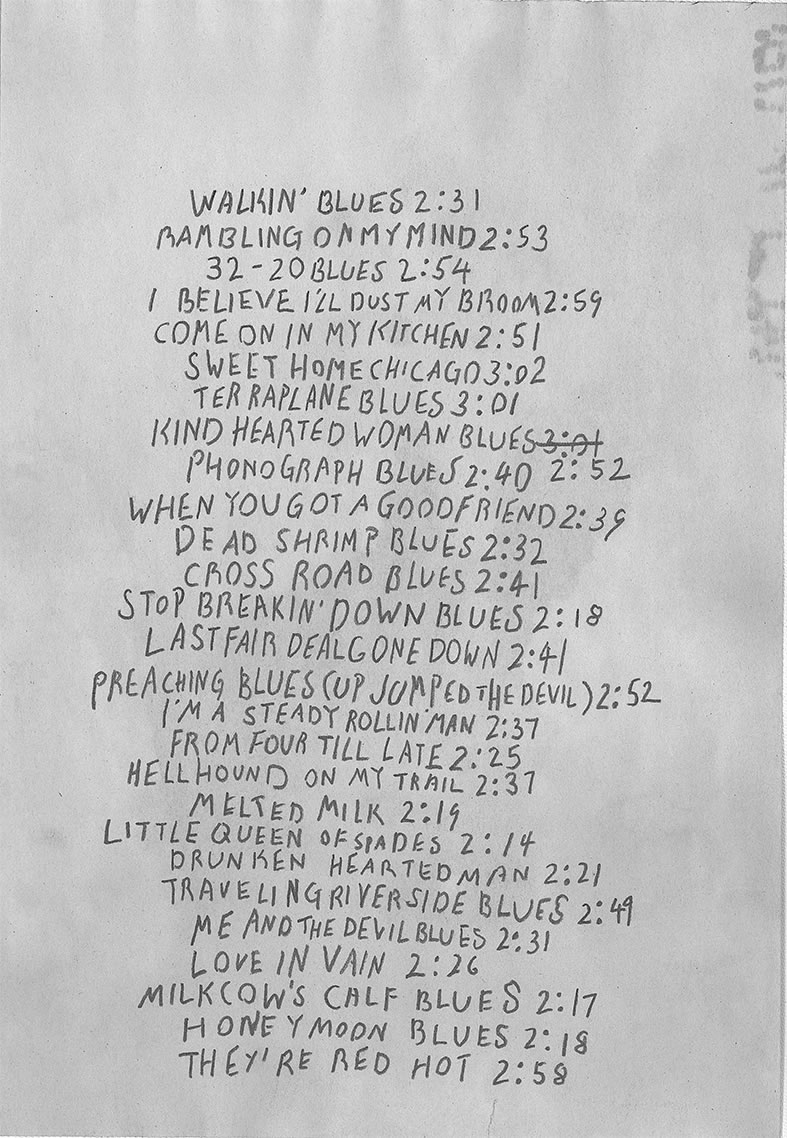 WALKIN' BLUES 2:31
RAMBLING ON MY MIND 2:53
32-20 BLUES 2:54
I BELIEVE I'LL DUST MY BROOM 2:59
COME ON IN MY KITCHEN 2:51
SWEET HOME CHICAGO 3:02
TERRAPLANE BLUES 3:01
KIND HEARTED WOMAN BLUES 3:01
PHONOGRAPH BLUES 2:40 2:52
WHEN YOU GOT A GOOD FRIEND 2:39
DEAD SHRIMP BLUES 2:32
CROSS ROAD BLUES 2:41
STOP BREAKIN' DOWN BLUES 2:18
LAST FAIR DEAL GONE DOWN 2:41
PREACHING BLUES (UP JUMPED THE DEVIL) 2:52
I'M A STEADY ROLLIN' MAN 2:37
FROM FOUR TILL LATE 2:25
HELLHOUND ON MY TRAIL 2:37
MELTED MILK 2:19
LITTLE QUEEN OF SPADES 2:14
DRUNKEN HEARTED MAN 2:21
TRAVELING RIVERSIDE BLUES 2:49
ME AND THE DEVIL BLUES 2:31
LOVE IN VAIN 2:26
MILKCOW'S CALF BLUES 2:17
HONEYMOON BLUES 2:18
THEY'RE RED HOT 2:58